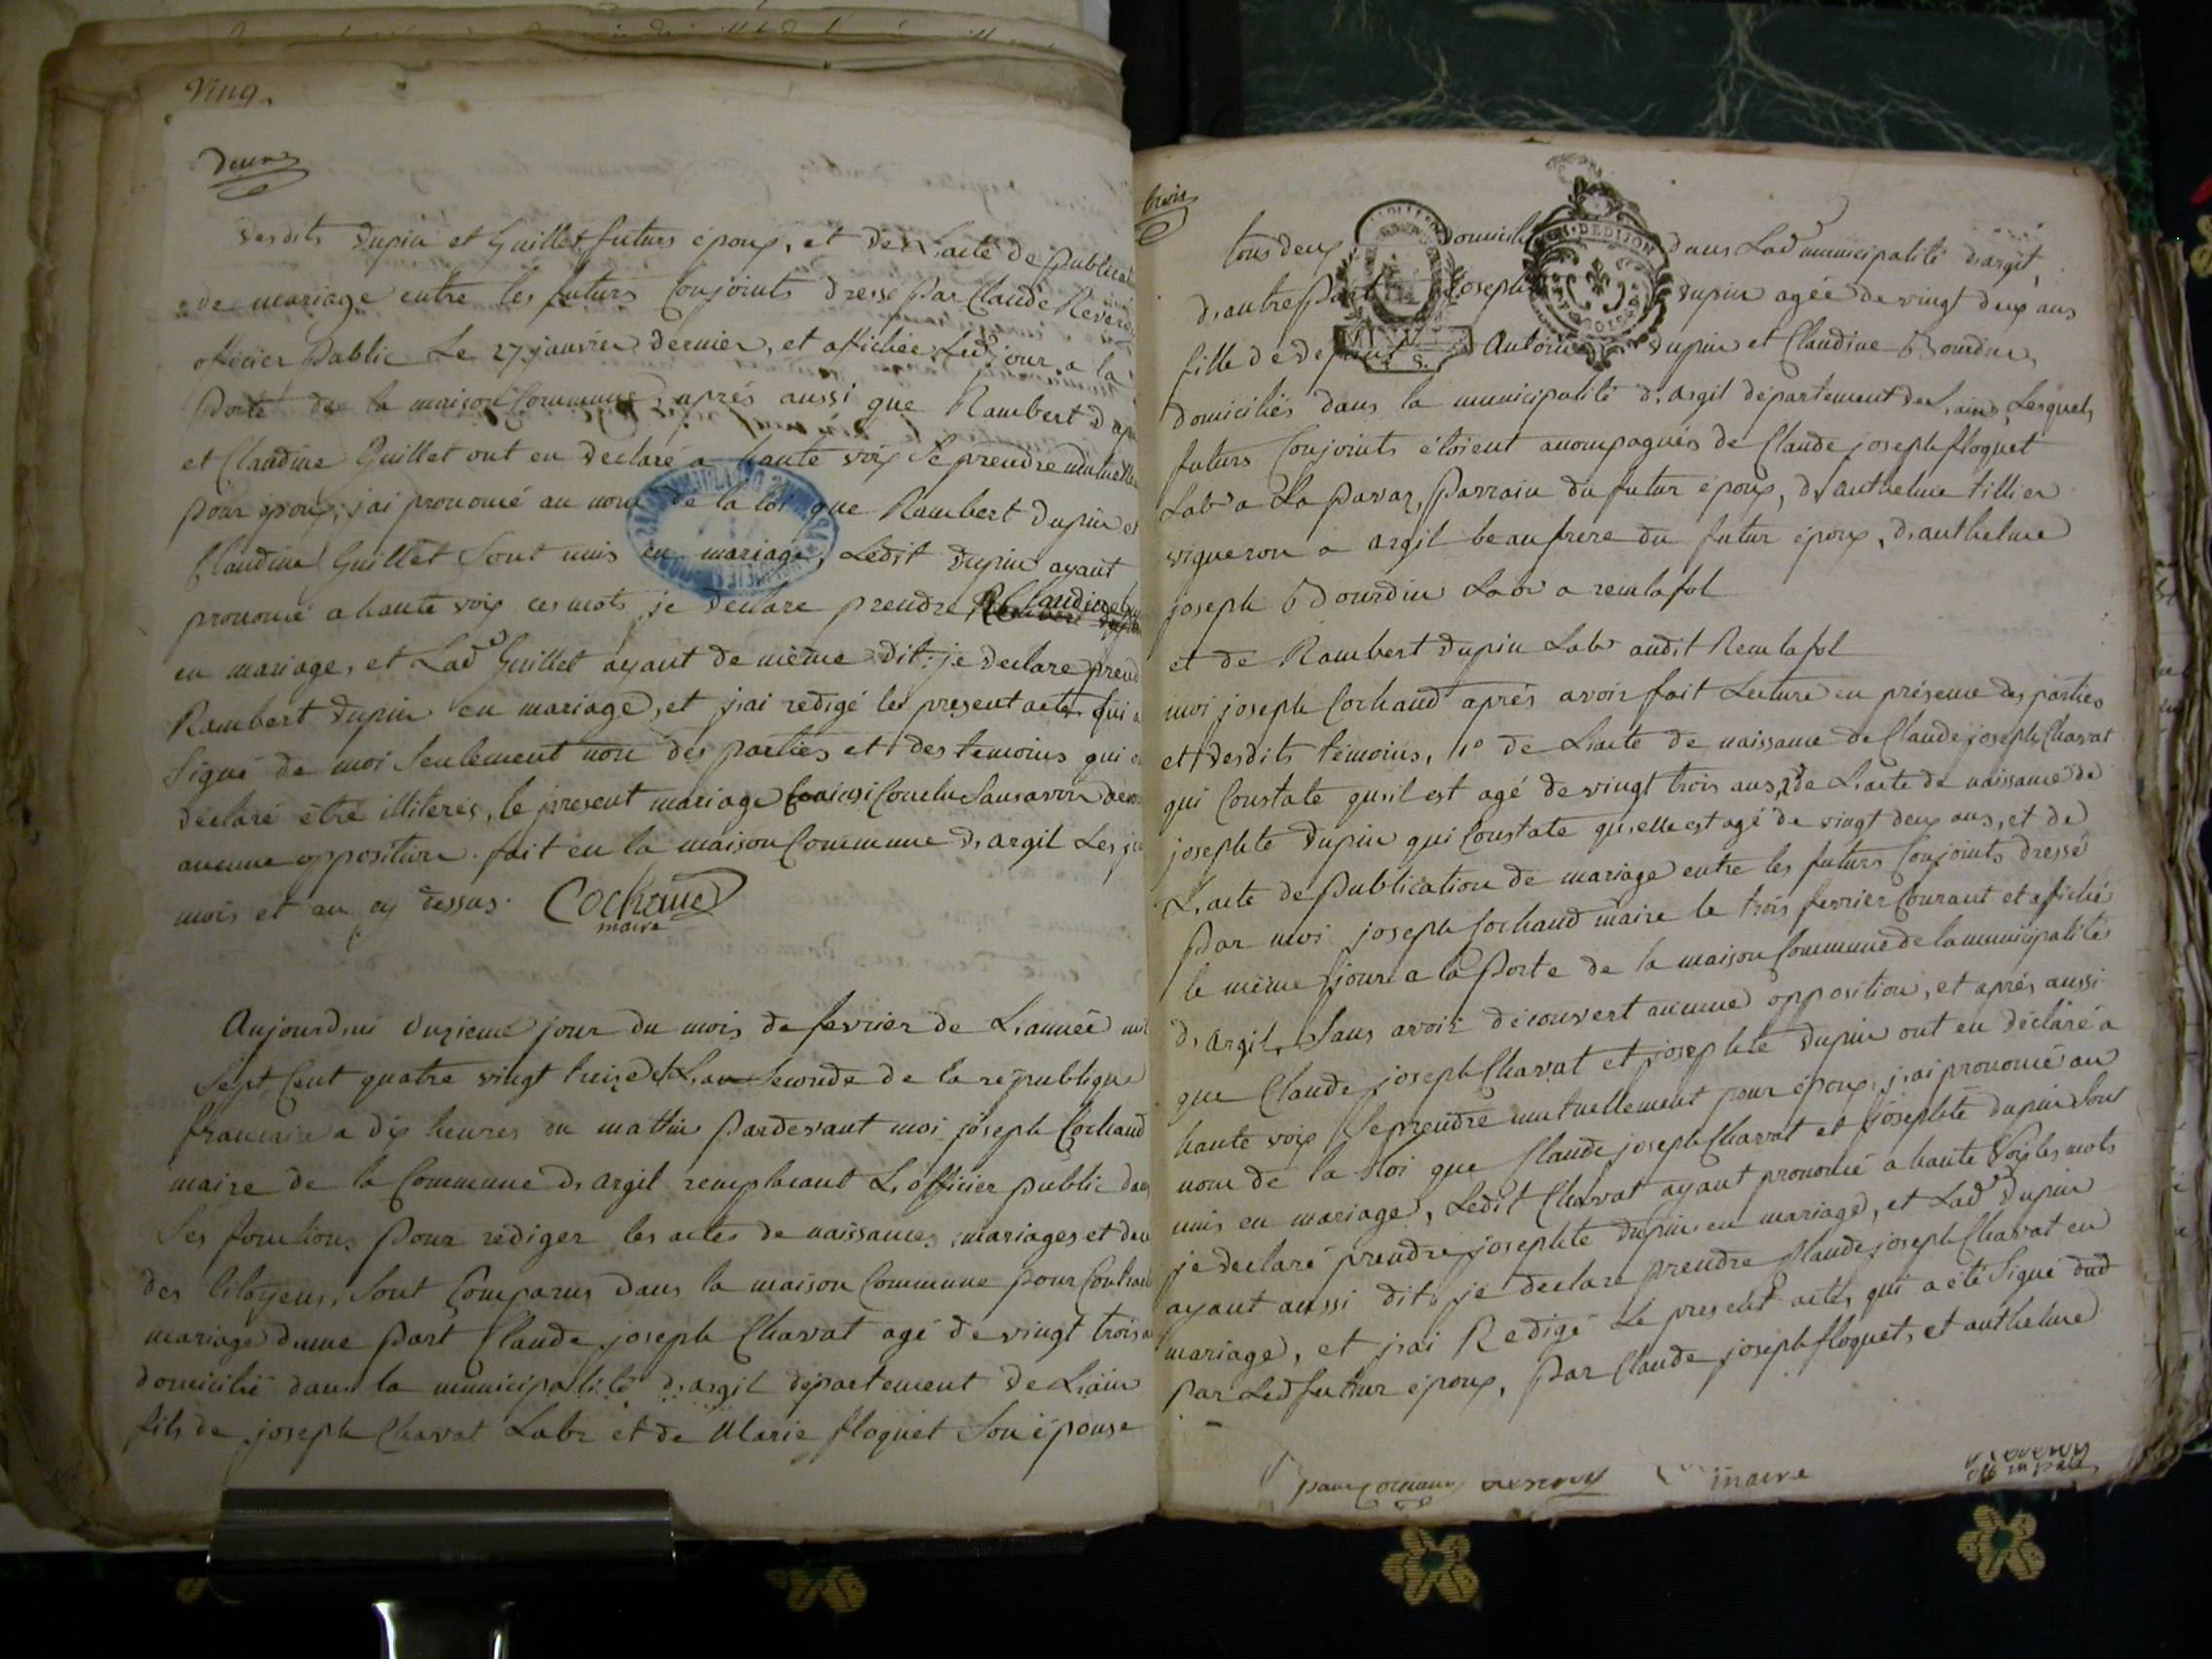 Ving.
deux
desdits dupin et Guillet futurs époux, et de L'acte de publicat
de mariage entre les futurs Conjoints dressé par Claude Rever
officier public Le 27 janvier dernier, et affichée Led jour a la
porte de la maison Commune, aprés aussi que Rambert dup
et Claudine Guillet ont eu declaré a haute voix Se prendre mutuelle
pour époux, j'ai prononcé au nom de la loi que Rambert dupin et
Claudine Guillet Sont unis en mariage, Ledit dupin ayant
prononcé a haute voix ces mots je declare prendre Claudine
en mariage, et Lad Guillet ayant de même dit; je declare prend
Rambert dupin en mariage, et j'ai redigé le present acte qui a
Signé de moi Seulement non des parties et des temoins qui o
déclaré être illiterés, le present mariage ainsi Conclu Sans avoir
aucune opposition. fait en la maison Commune d'argil Les jo
mois et an cy dessus. Cochaud
maire
Aujourd'ui onzieme jour du mois de fevrier de L'année mil
Sept Cent quatre vingt treize et L'an Seconde de la republique
francaise a dix heures du mattin pardevant moi joseph Cochaud
maire de la Commune d'argil remplacant L'officier public dans
Ses fonctions pour rediger les actes de naissances mariages et de
des Citoyens, Sont Comparus dans la maison Commune pour Contract
mariage d'une part Claude joseph Chavat agé de vingt trois a
domicilié dans la municipalité d'argil département de L'ain
fils de joseph Chavat Labr et de Marie floquet Son épouse
trois
tous deux domicili dans Lad municipalité d'argil,
d'autre part joseph dupin agée de vingt deux ans
fille de defunt Antoine dupin et Claudine Bourdin
domiciliés dans la municipalité d'argil département de L'ain, Lesquels
futurs Conjoints étoient accompagnés de Claude joseph floquet
Labr a La pavaz, parrain du futur époux, d'anthelme tillier
vigneron a argil beaufrere du futur époux, d'anthelme
joseph Bourdin Labr a remlafol
et de Rambert dupin Labr audit Remlafol
moi joseph Cochaud aprés avoir fait Lecture en présence des parties
et desdits témoins, 1º de L'acte de naissance de Claude joseph Chavat
qui Constate qu'il est agé de vingt trois ans, 2º de L'acte de naissance de
josephte dupin qui Constate qu'elle est agé de vingt deux ans, et de
L'acte de publication de mariage entre les futurs Conjoints dressé
par moi joseph Cochaud maire le trois fevrier Courant et affiché
le même jour a la porte de la maison Commune de la municipalité
d'argil, Sans avoir découvert aucune opposition, et aprés aussi
que Claude joseph Chavat et josephte dupin ont eu déclaré a
haute voix Se prendre mutuellement pour époux, j'ai prononcé au
nom de la loi que Claude joseph Chavat et josephte dupin Sont
unis en mariage, Ledit Chavat ayant prononcé a haute voix les mots
je declare prendre josephte dupin en mariage, et Lad dupin
ayant aussi dit, je declare prendre Claude joseph Chavat en
mariage, et j'ai Redigé Le present acte, qui a eté Signé dud
par Led futur époux, par Claude joseph floquet, et anthelme
maire